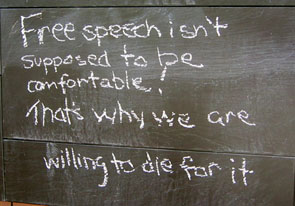 Free speech isn't
supposed to be
comfortable!
That's why we are
willing to die for it